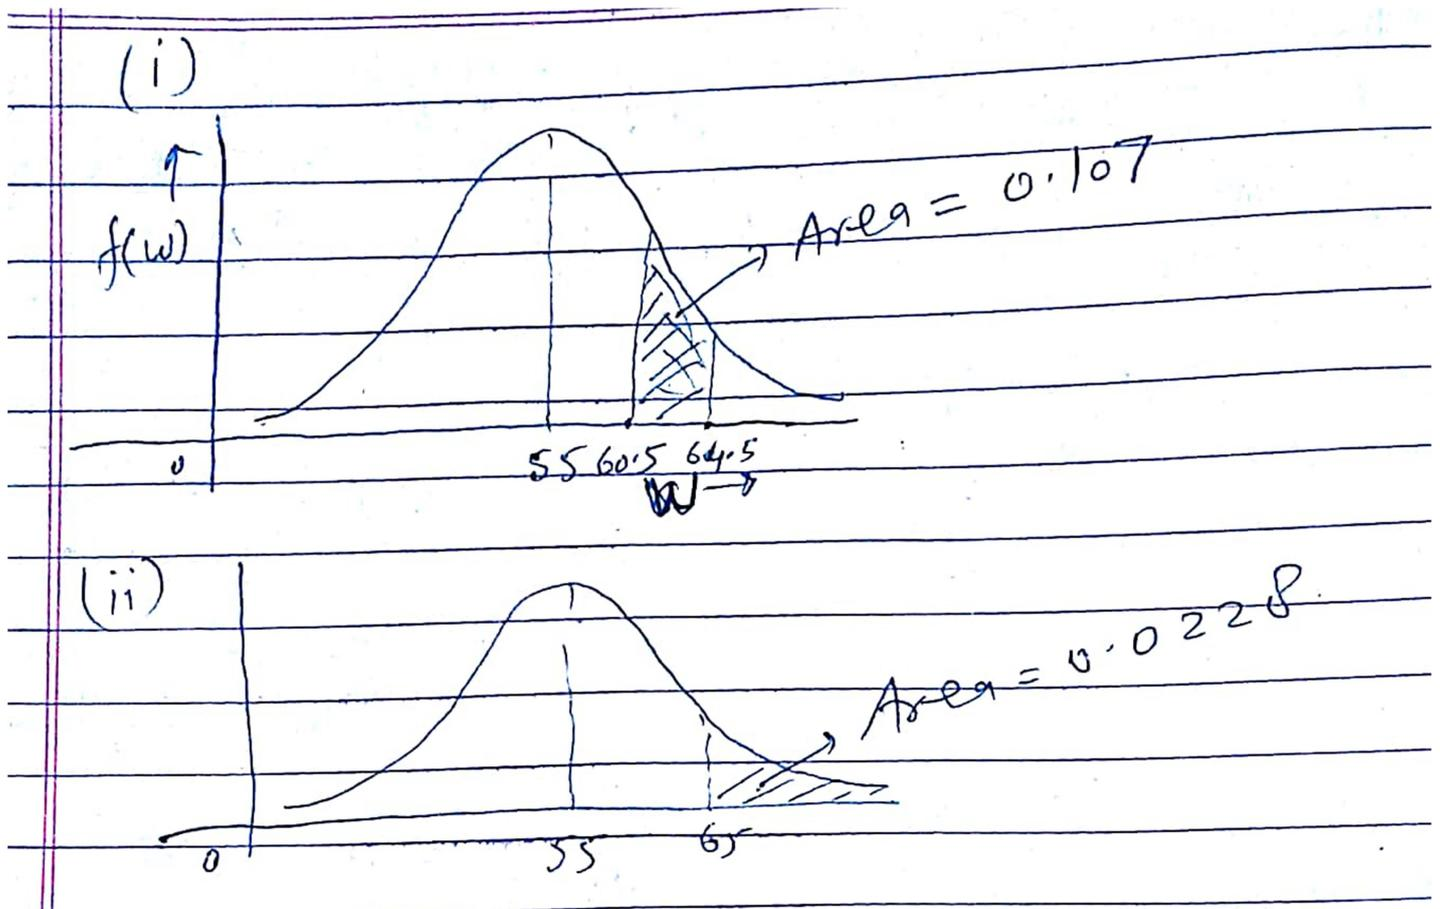 (i)
↑
f(w)
Area = 0.107
55 60.5 64.5
0
W →
(ii)
Area = 0.0228
0 55 65